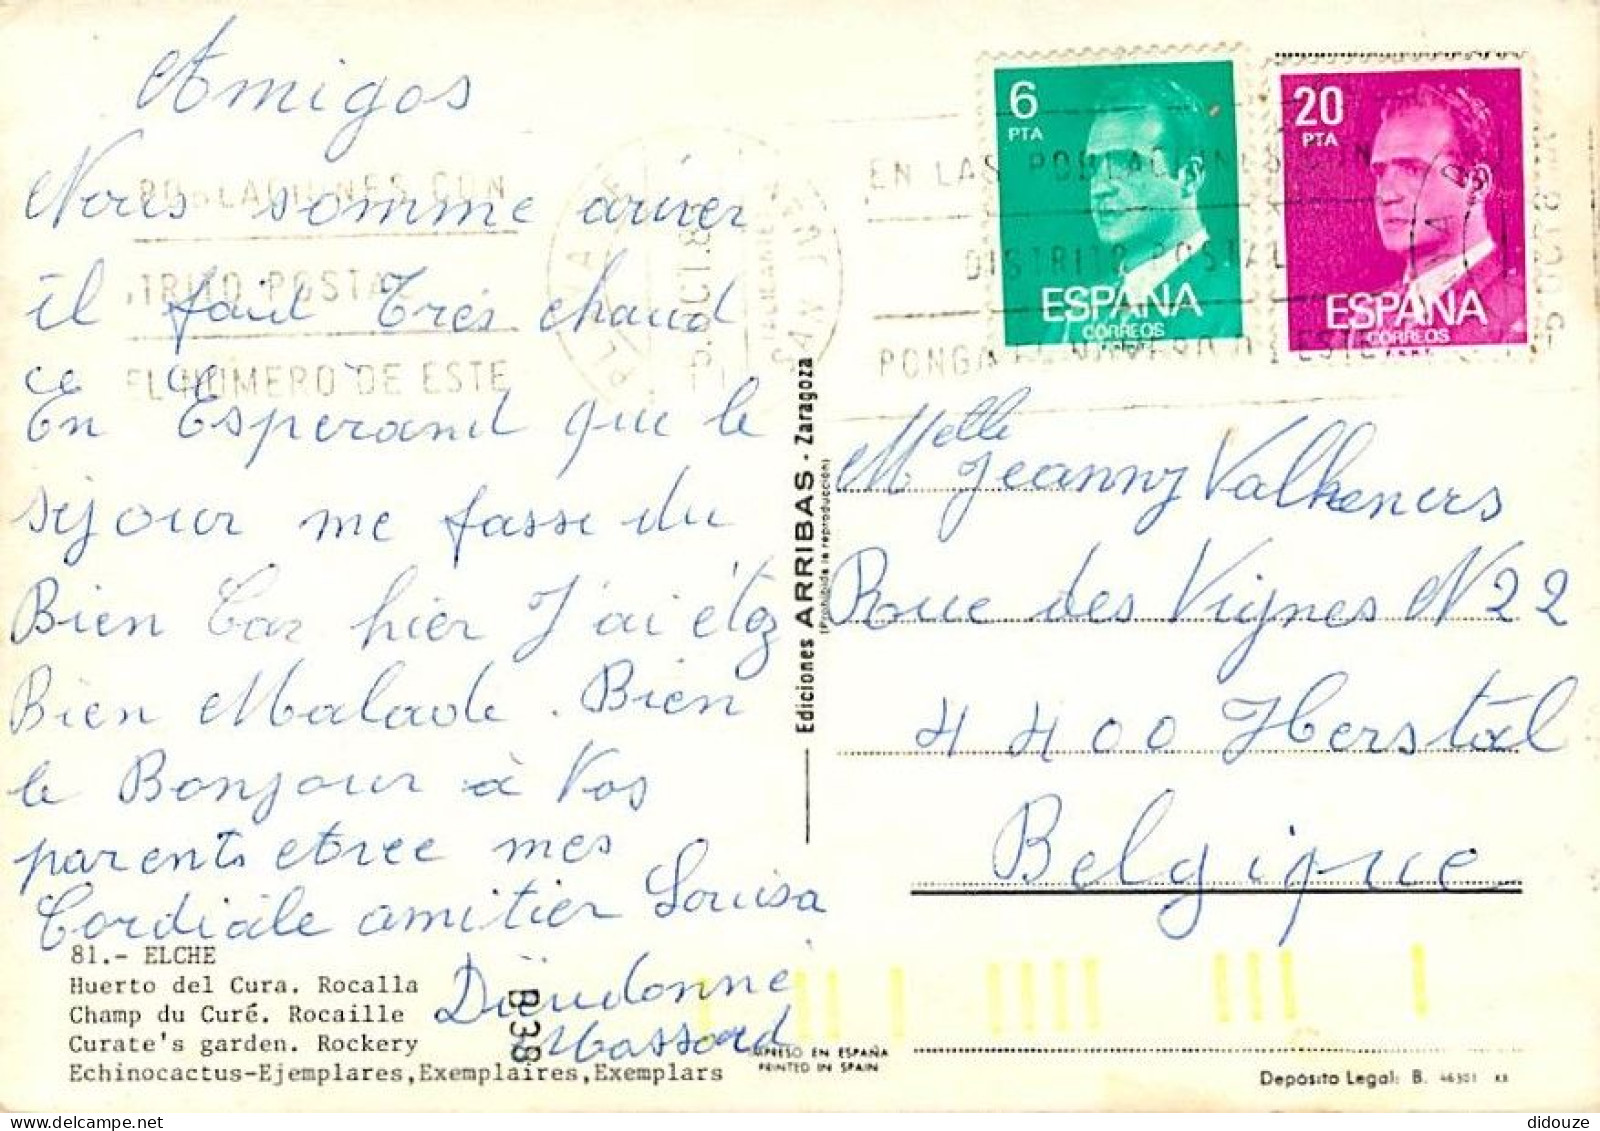 Amigos
Nous somme ariver
il fait Trés chaud
ce
En Esperand que le
séjour me fasse du
Bien Car hier J'ai étez
Bien Malade. Bien
le Bonjour à Vos
parents etrec mes
Cordiale amitier Louisa
Dieudonne
Massard
81.- ELCHE
Huerto del Cura. Rocalla
Champ du Curé. Rocaille
Curate's garden. Rockery
Echinocactus-Ejemplares,Exemplaires,Exemplars
B 38
Ediciones ARRIBAS - Zaragoza
(Prohibida la reproducción)
POBLACIONES CON
TRITO POSTAL
EL NUMERO DE ESTE
6
PTA
ESPAÑA
CORREOS
20
PTA
ESPAÑA
CORREOS
EN LAS POBLACIONES CON
DISTRITO POSTAL
PONGA EL NUMERO DE ESTE
Melle Jeanny Valkeners
Rue des Vignes N 22
4400 Herstal
Belgique
IMPRESO EN ESPAÑA
PRINTED IN SPAIN
Depósito Legal: B. 46301 XX
didouze